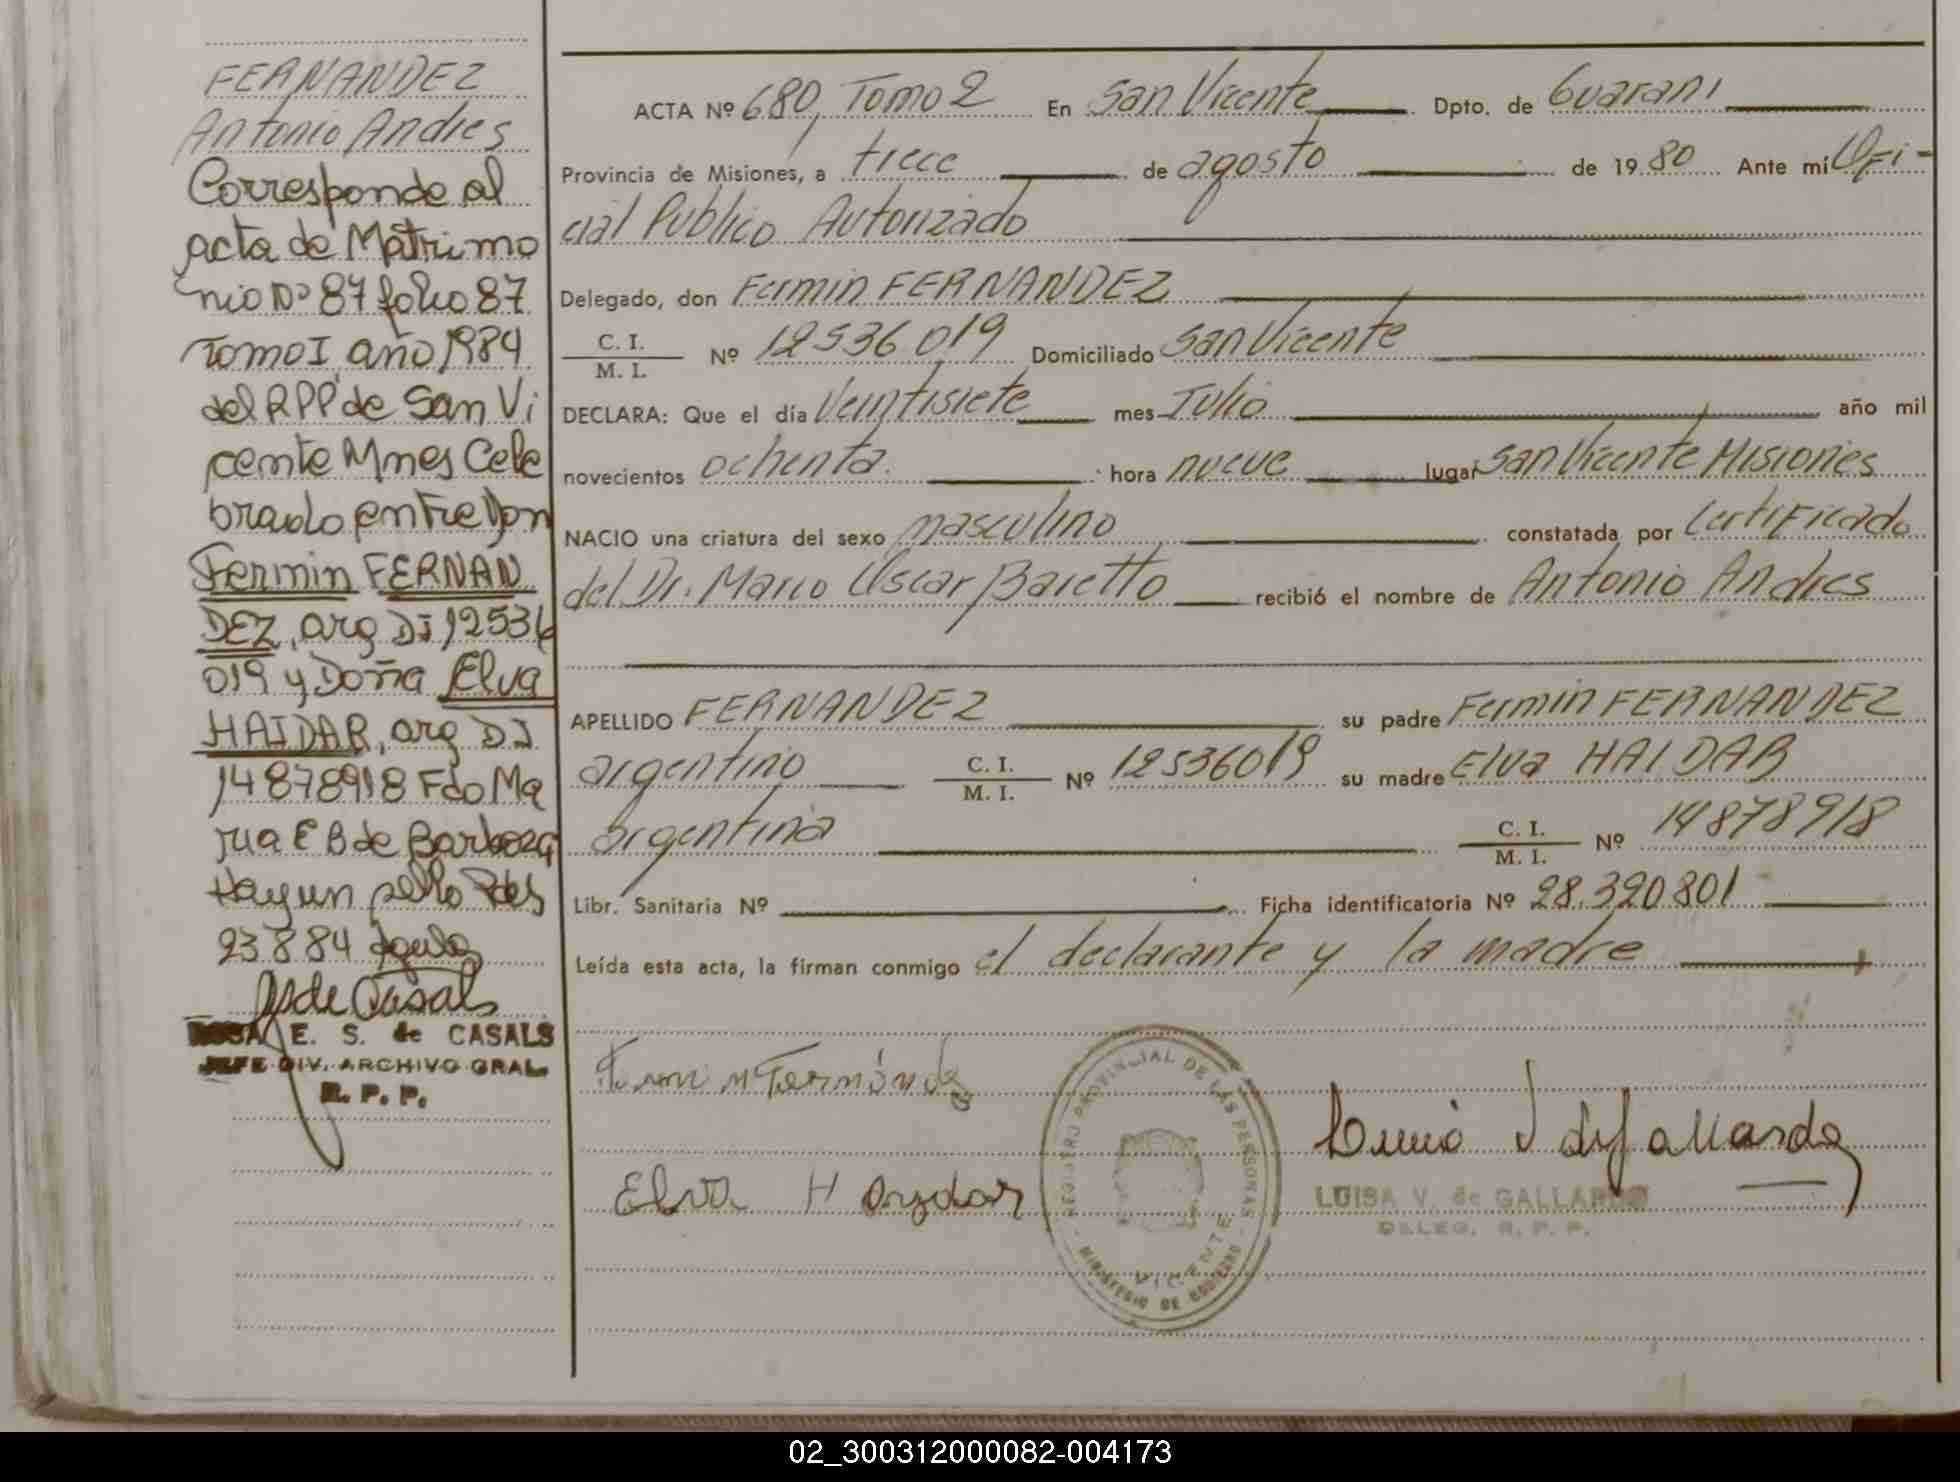 FERNANDEZ
Antonio Andres
Corresponde al
acta de Matrimo
nio Nº 87 folio 87
Tomo I año 1984
del RPP de San Vi
cente Mnes Cele
brado entre Don
Fermin FERNAN
DEZ, arg DI 12536
019 y Doña Elva
HAIDAR, arg DI
14878918 Fdo Ma
ria E B de Barboza
Hay un sello Pdes
23 8 84
de Casals
ROSA E. S. de CASALS
JEFE DIV. ARCHIVO GRAL.
R. P. P.
ACTA Nº 680, Tomo 2 En San Vicente Dpto. de Guarani
Provincia de Misiones, a trece de agosto de 1980 Ante mí Ofi-
cial Publico Autorizado
Delegado, don Fermin FERNANDEZ
C. I.
M. I. Nº 12536.019 Domiciliado San Vicente
DECLARA: Que el día Veintisiete mes Julio año mil
novecientos ochenta. hora nueve lugar San Vicente Misiones
NACIO una criatura del sexo masculino constatada por Certificado
del Dr. Marco Oscar Baretto recibió el nombre de Antonio Andres
APELLIDO FERNANDEZ su padre Fermin FERNANDEZ
argentino C. I.
M. I. Nº 12536019 su madre Elva HAIDAR
argentina C. I.
M. I. Nº 14878918
Libr. Sanitaria Nº Ficha identificatoria Nº 28.320.801
Leída esta acta, la firman conmigo el declarante y la madre
Fermin Fernández
Elva H
REGISTRO PROVINCIAL DE LAS PERSONAS
VICENTE
MINISTERIO DE GOBIERNO
LUISA V. de GALLARDO
DELEG. R. P. P.
02_300312000082-004173